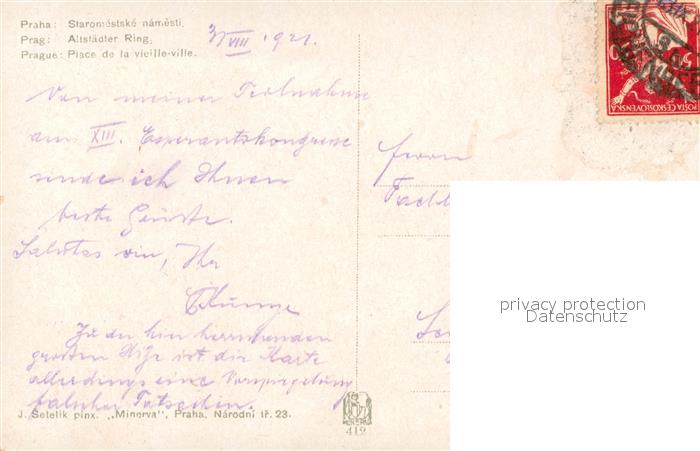 Praha: Staroměstské náměstí.
Prag: Altstädter Ring.
Prague: Place de la vieille-ville.
3/VIII 1921.
Von meiner Teilnahme
am XIII. Esperantokongresse
sende ich Ihnen
beste Grüsse.
Salutas vin, Ihr
Zu der hier herrschenden
grossen Hitze ist die Karte
allerdings eine Vorspiegelung
falscher Tatsachen.
J. Šetelík pinx. „Minerva", Praha, Národní tř. 23.
412
Herrn
POŠTA ČESKOSLOVENSKÁ
50
privacy protection
Datenschutz